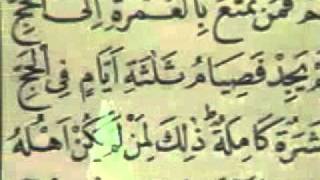 فَمَنْ تَمَتَّعَ بِالْعُمْرَةِ اِلَى الْحَجِّ
يَجِدْ فَصِيَامُ ثَلٰثَةِ اَيَّامٍ فِى الْحَجِّ
عَشَرَةٌ كَامِلَةٌ ؕ ذٰلِكَ لِمَنْ لَّمْ يَكُنْ اَهْلُهٗ